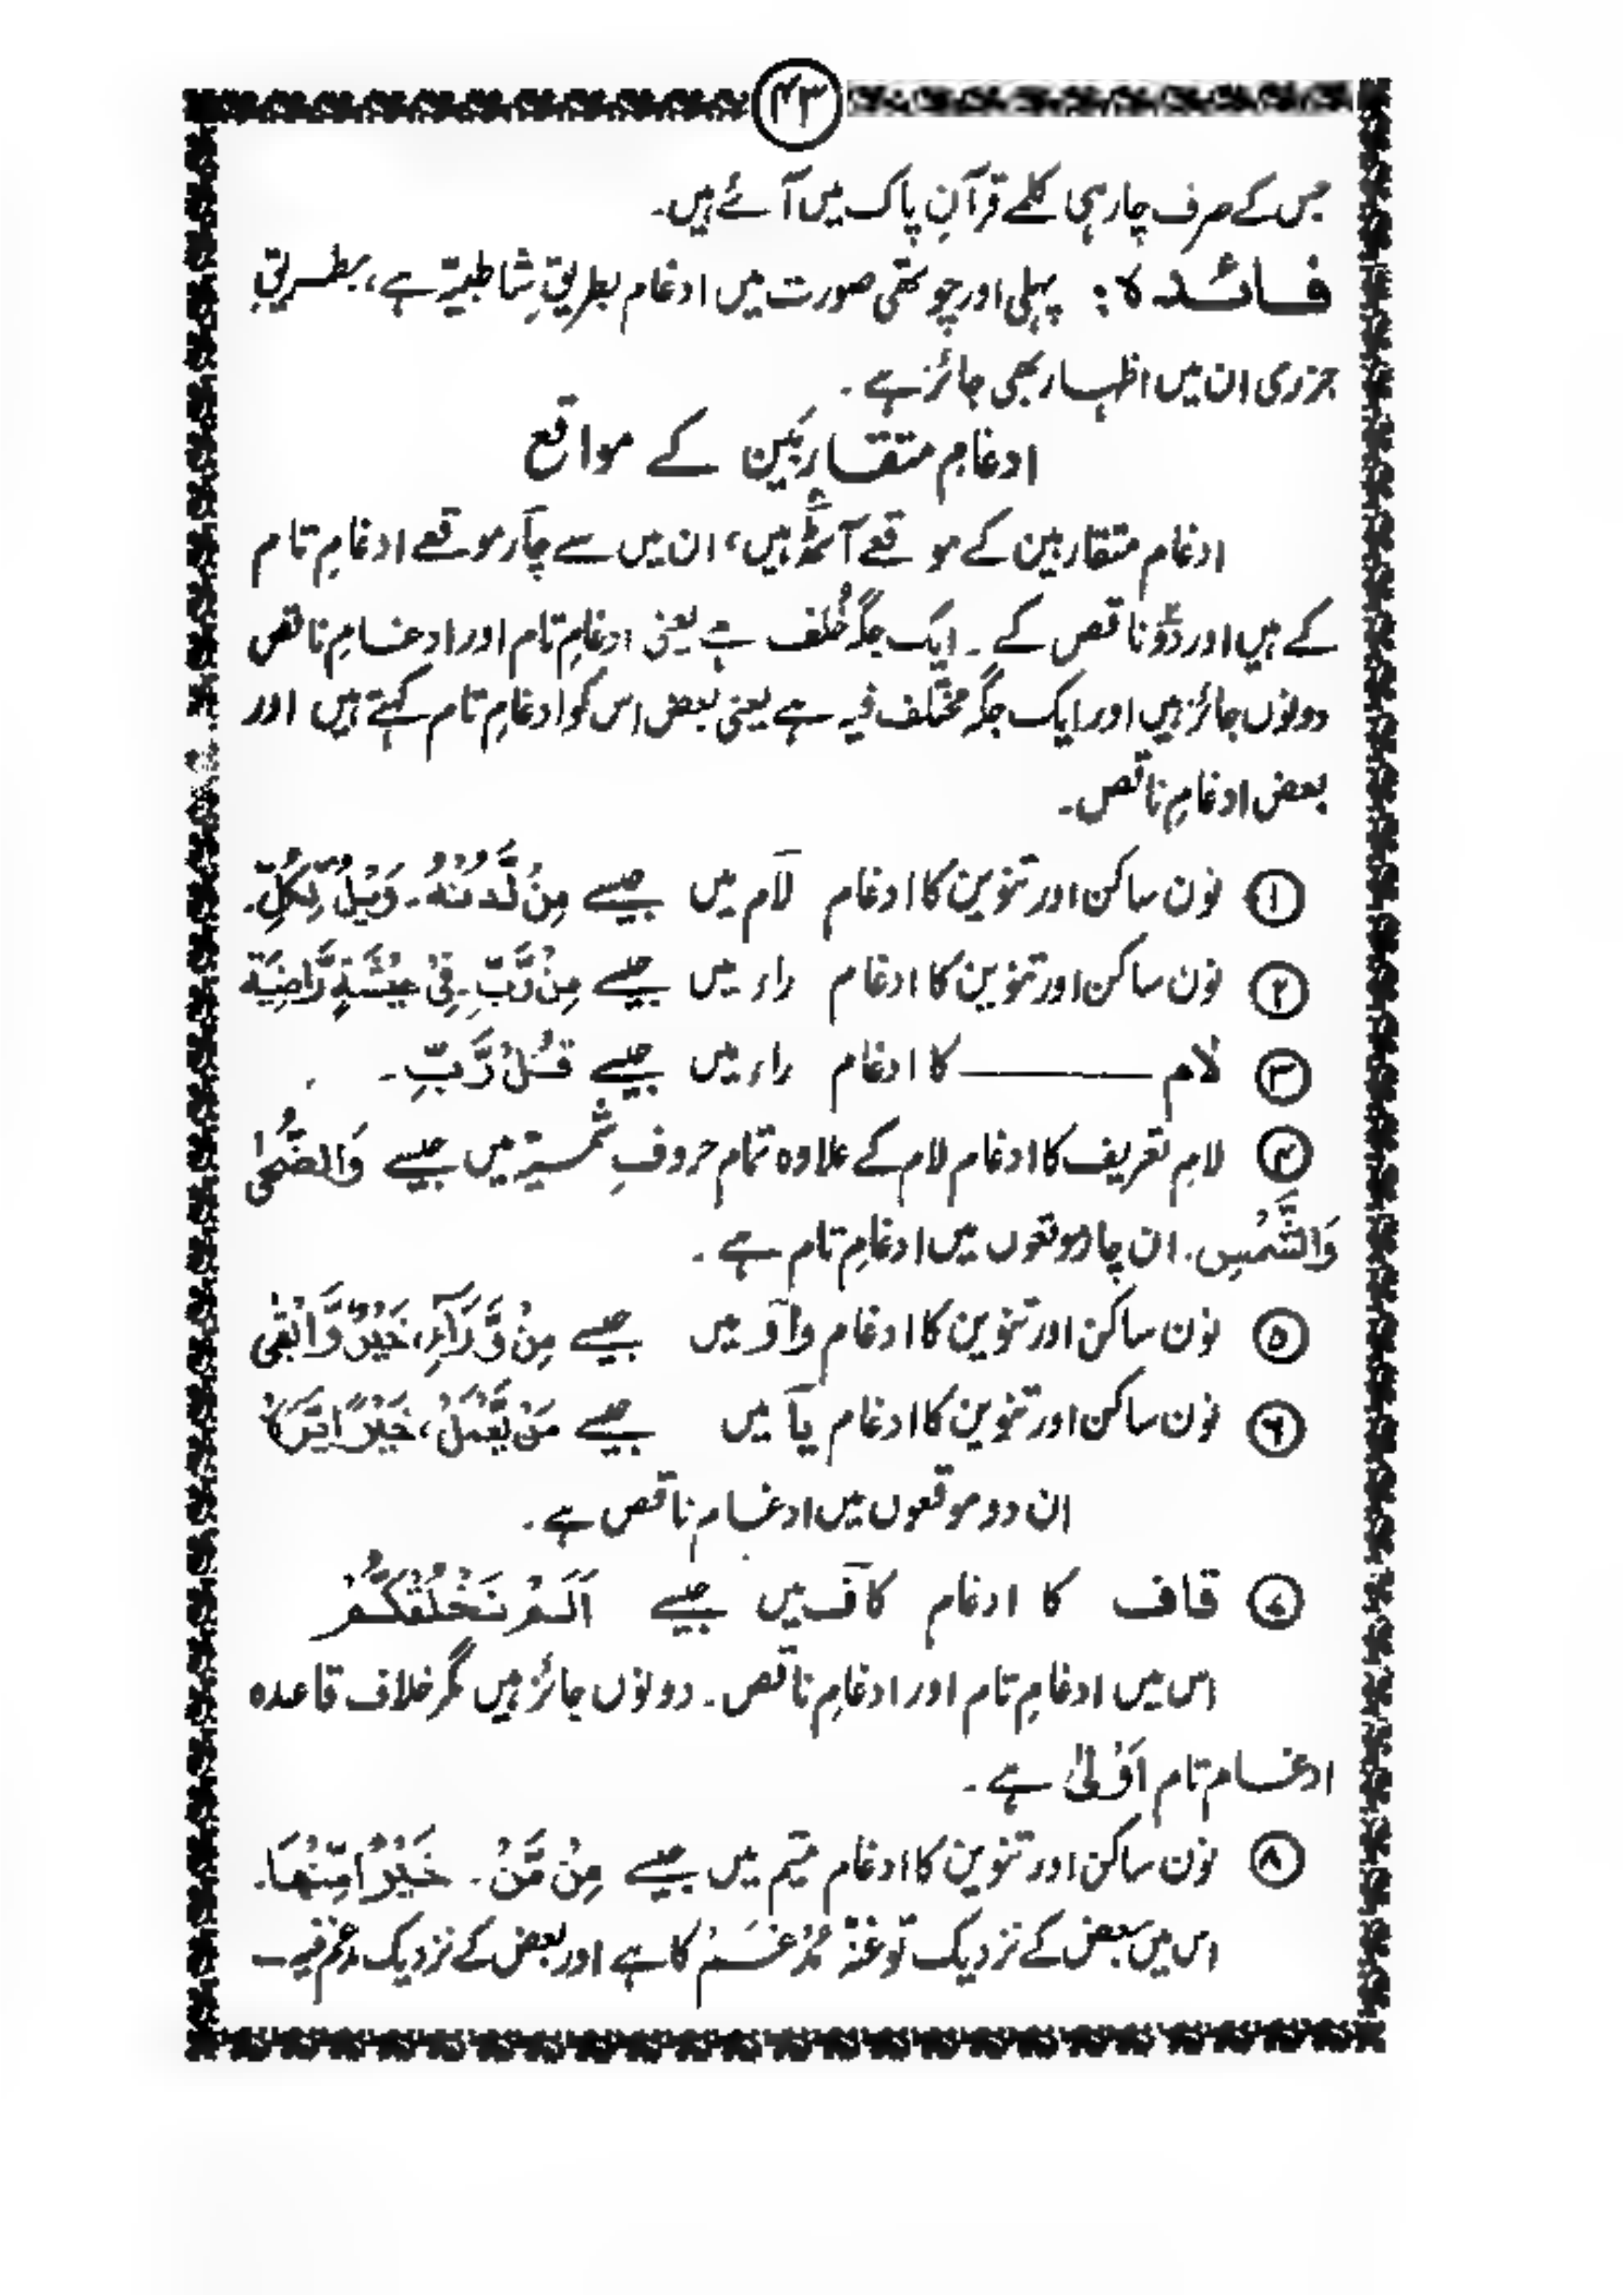 ۴۳
جس کے صرف چار ہی کلمے قرآنِ پاک میں آئے ہیں۔
فائدہ: پہلی اور چوتھی صورت میں ادغام بطریقِ شاطبیّہ ہے، بطریقِ
جزری ان میں اظہار بھی جائز ہے۔
ادغامِ متقاربَین کے مواقع
ادغام متقاربین کے موقعے آٹھ ہیں، ان میں سے چار موقعے ادغامِ تام
کے ہیں اور دو ناقص کے۔ ایک جگہ خُلف ہے یعنی ادغامِ تام اور ادغامِ ناقص
دونوں جائز ہیں اور ایک جگہ مختلف فیہ ہے یعنی بعض اس کو ادغامِ تام کہتے ہیں اور
بعض ادغامِ ناقص۔
① نون ساکن اور تنوین کا ادغام لام میں جیسے مِنْ لَّدُنْهُ۔ وَيْلٌ لِّكُلِّ۔
② نون ساکن اور تنوین کا ادغام راء میں جیسے مِنْ رَّبِّ۔ فِيْ عِيْشَةٍ رَّاضِيَةٍ
③ لام ــــــــــ کا ادغام راء میں جیسے قُلْ رَّبِّ۔
④ لامِ تعریف کا ادغام لام کے علاوہ تمام حروفِ شمسیّہ میں جیسے وَالضُّحٰى
وَالشَّمْسِ۔ ان چار موقعوں میں ادغامِ تام ہے۔
⑤ نون ساکن اور تنوین کا ادغام واؤ میں جیسے مِنْ وَّرَآءِ، خَيْرٌ وَّاَبْقٰى
⑥ نون ساکن اور تنوین کا ادغام یا میں جیسے مَنْ يَّعْمَلْ، خَيْرًا يَّرَهٗ
ان دو موقعوں میں ادغام ناقص ہے۔
⑦ قاف کا ادغام کاف میں جیسے اَلَمْ نَخْلُقْكُّمْ
اس میں ادغامِ تام اور ادغامِ ناقص۔ دونوں جائز ہیں مگر خلاف قاعدہ
ادغام تام اَوْلٰی ہے۔
⑧ نون ساکن اور تنوین کا ادغام میم میں جیسے مِنْ مَّنْ۔ خَيْرًا مِّنْهَا۔
اس میں بعض کے نزدیک تو غنّہ مُدْغَم کا ہے اور بعض کے نزدیک مدغم فیہ